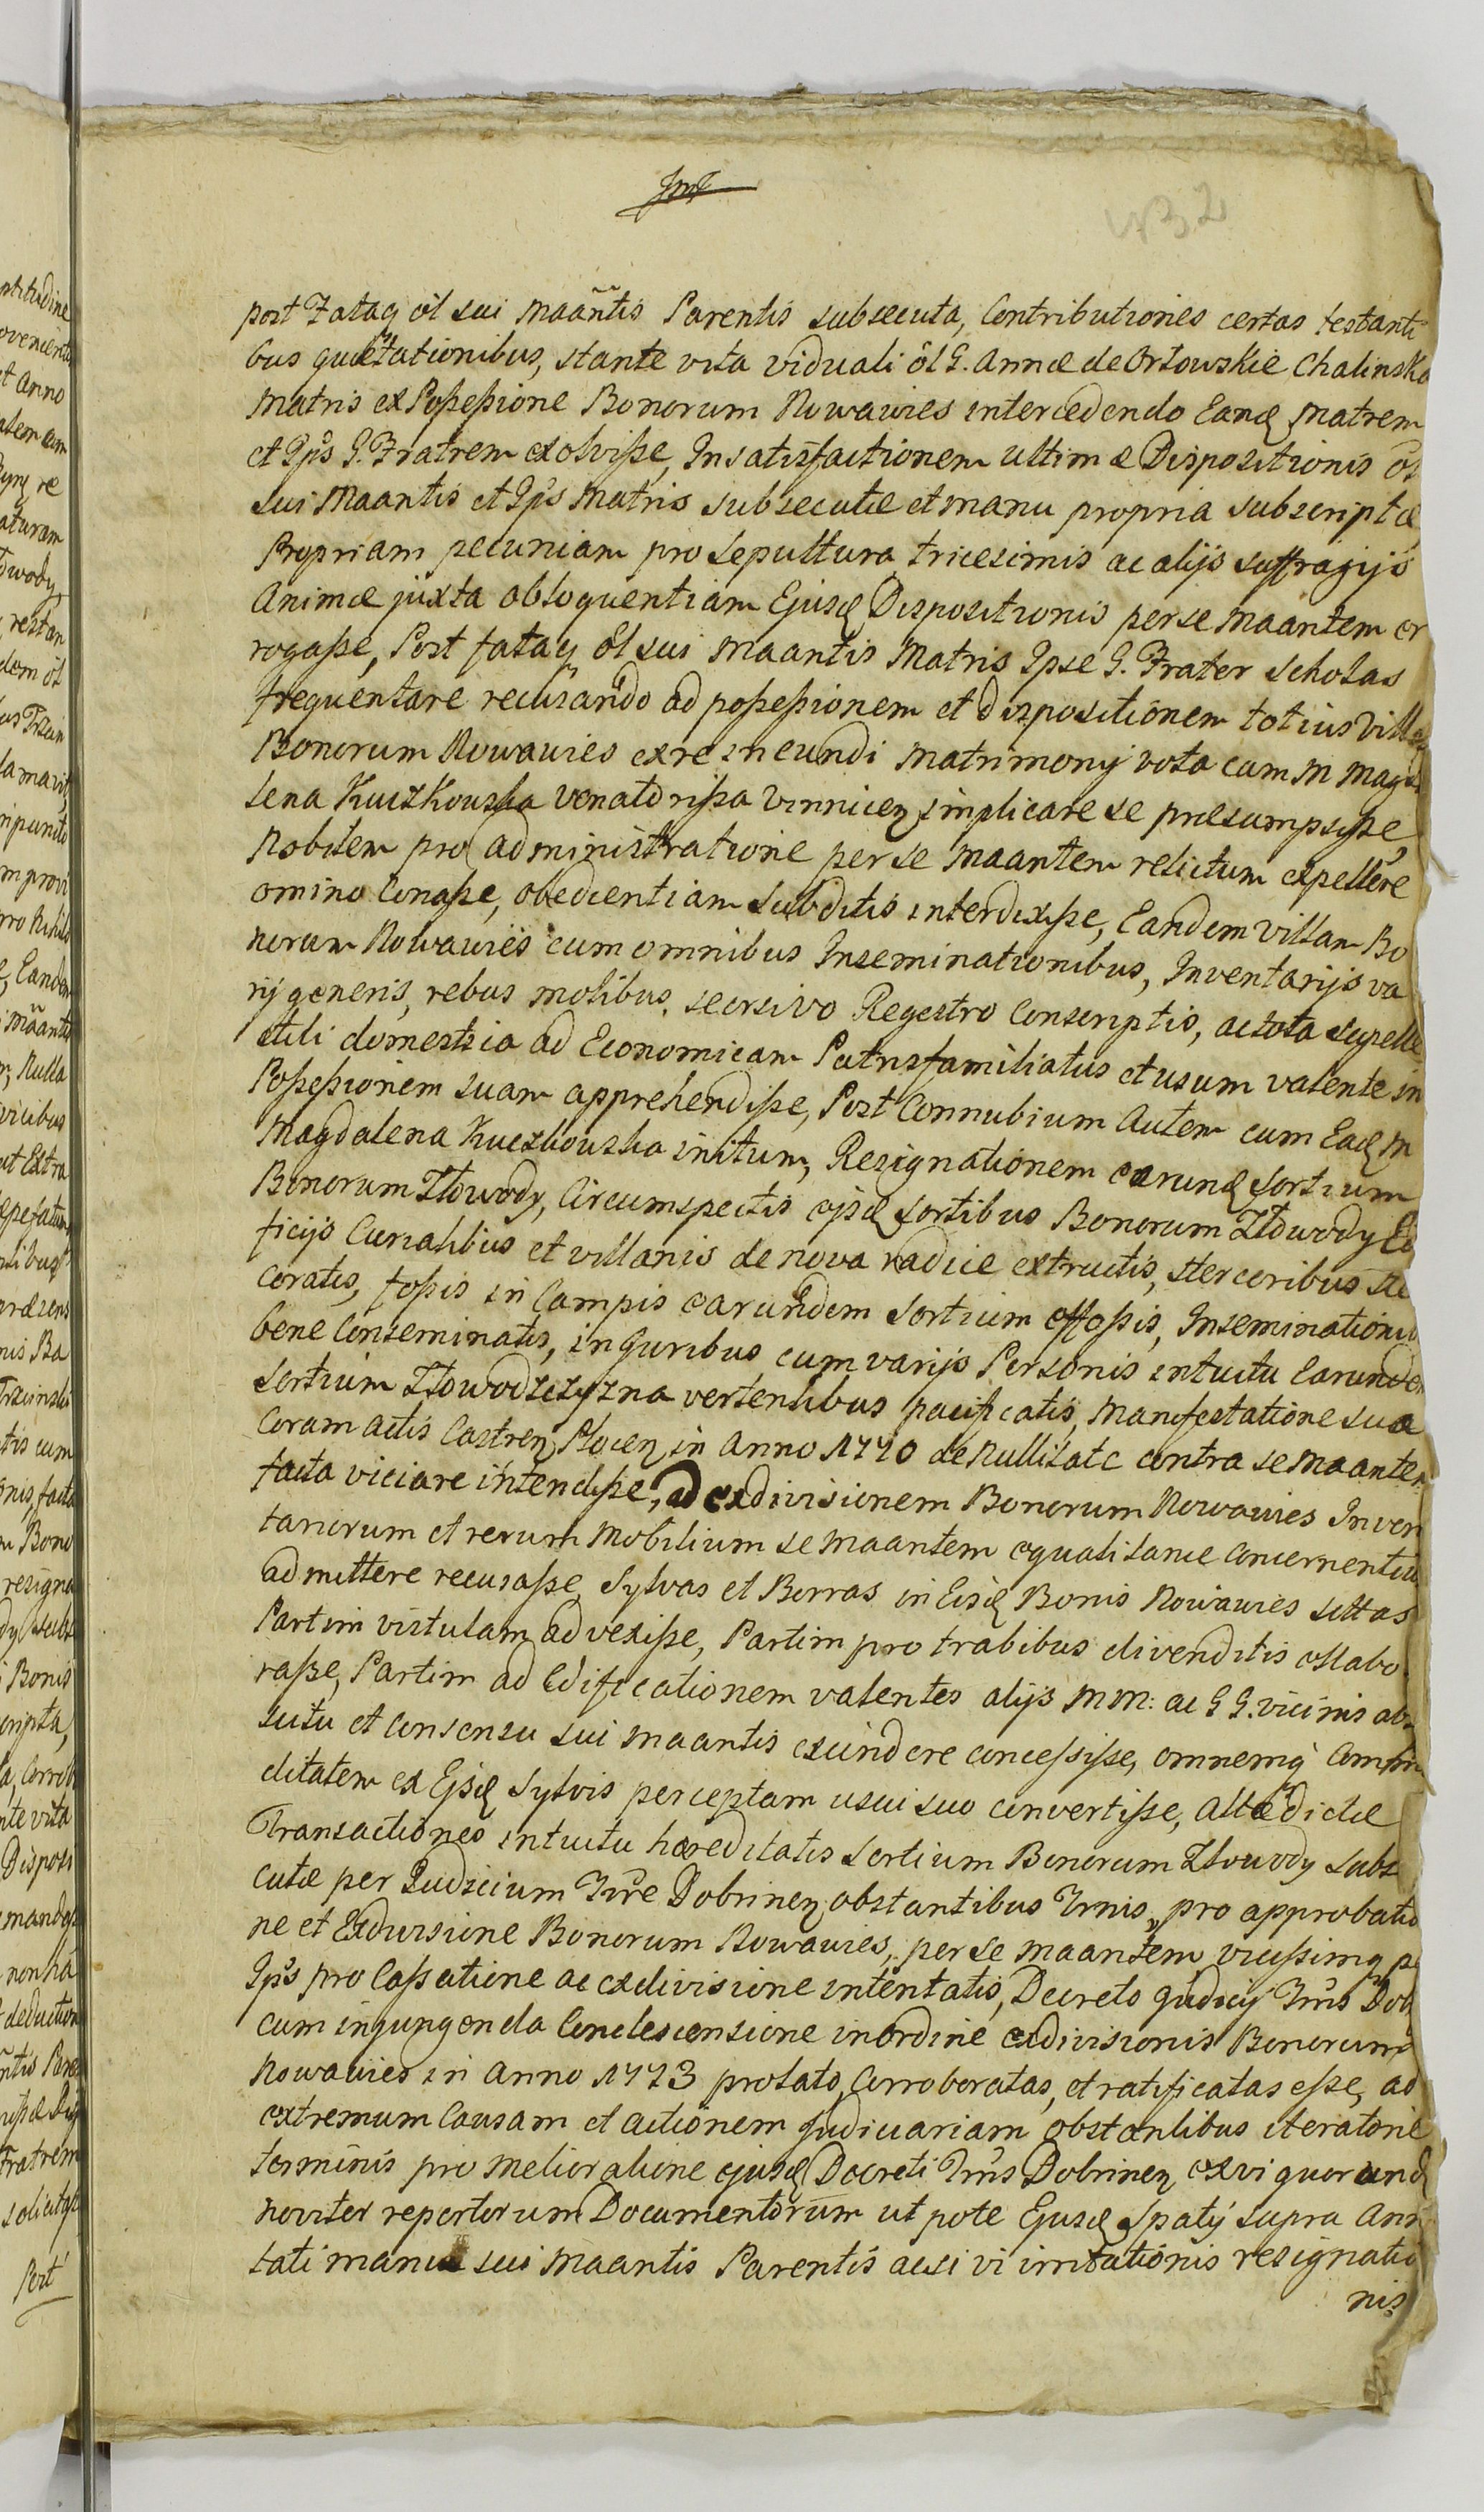 432
post Fataq ol sui maantis Parentis subsecuta, Contributiones certas testanti
bus quietationibus, stante vita viduali ol G. Annæ de Orłowskie Chalinska
Matris ex Poſseſsione Bonorum Nowawies intercedendo Eand Matrem
et Ips G. Fratrem exolviſse, In satisfactionem ultimæ Dispositionis ol
sui Maantis et Ips Matris subsecutæ et manu propria subscriptæ
Propriam pecuniam pro sepultura tricesimis ac alijs suffragijs
Animæ juxta obloquentiam Ejusd Dispositionis per se maantem er
rogaſse, Post fataq ol sui maantis Matris Ipse G. Frater Scholas
frequentare recusando ad poſseſsionem et dispositionem totius Villæ
Bonorum Nowawies ex re ineundi matrimonij vota cum M Magda
lena Kuczkowska Venatoriſsa Vinnicen implicare se præsumpsiſse,
Nobilem pro administratione per se maantem relictum expellere
omino Conaſse, obedientiam subditis interdixiſse, Eandem villam Bo
norum Nowawies cum omnibus Inseminationibus, Inventarijs va
rij generis, rebus mobibus, seorsivo Regestro Conscriptis, ac tota supelle
ctili domestica ad Economicam Patrisfamiliatus et usum valente in
Poſseſsionem suam apprehendiſse, Post Connubium Autem cum Ead M
Magdalena Kuczkowska initum, Resignationem earund sortium
Bonorum Złowody, Circumspectis ejsd sortibus Bonorum Złowody Ed
ficijs Curialibus et villanis de nova radice extructis, stercoribus ste
coratis, foſsis in Campis earundem sortium effoſsis, Inseminationi
bene Conseminatis, injuribus cum varijs Personis intuitu Earundem
sortium Złowodzczyzna vertentibus pacificatis, Manifestatione sua
Coram actis Castren Plocen in Anno 1770 de Nullitate contra se maantem
facta viciare intendiſse, ad exdivisionem Bonorum Nowawies Inven
tariorum et rerum mobilium se maantem equali lance concernentiu
admittere recusaſse, Sylvas et Borras in Eisd Bonis Nowawies sittas
Partim vistulam advexiſse, Partim pro trabibus divenditis ellabo
raſse, Partim ad Edificationem valentes alijs MM: ac GG. vicinis abs
situ et consensu sui maantis exindere conceſsiſse, omnemq Commo
ditatem ex Ejsd Sylvis perceptam usui suo convertiſse, Altedictæ
Transactiones intuitu hæreditatis sortium Bonorum Złowody subse
cutæ per Judicium Trre Dobrinen, obstantibus Trnis, pro approbatio
ne et Exdivisione Bonorum Nowawies, per se maantem viciſsimq p
Ips pro Caſsatione ac exdivisione intentatis, Decreto Judicij Trris Dob
cum injungenda Condescensione in ordine exdivisionis Bonorum
Nowawies in Anno 1773 prolato, Corroboratas, et ratificatas eſse, ad
extremum Causam et actionem Judiciariam obstantibus iteratorie
terminis pro melioratione ejusd Decreti Trris Dobrinen ex vi quorund
noviter repertorum Documentorum ut pote Ejusd Spatij supra Ann
tati manu sui maantis Parentis acsi vi irritationis resignatio
nis